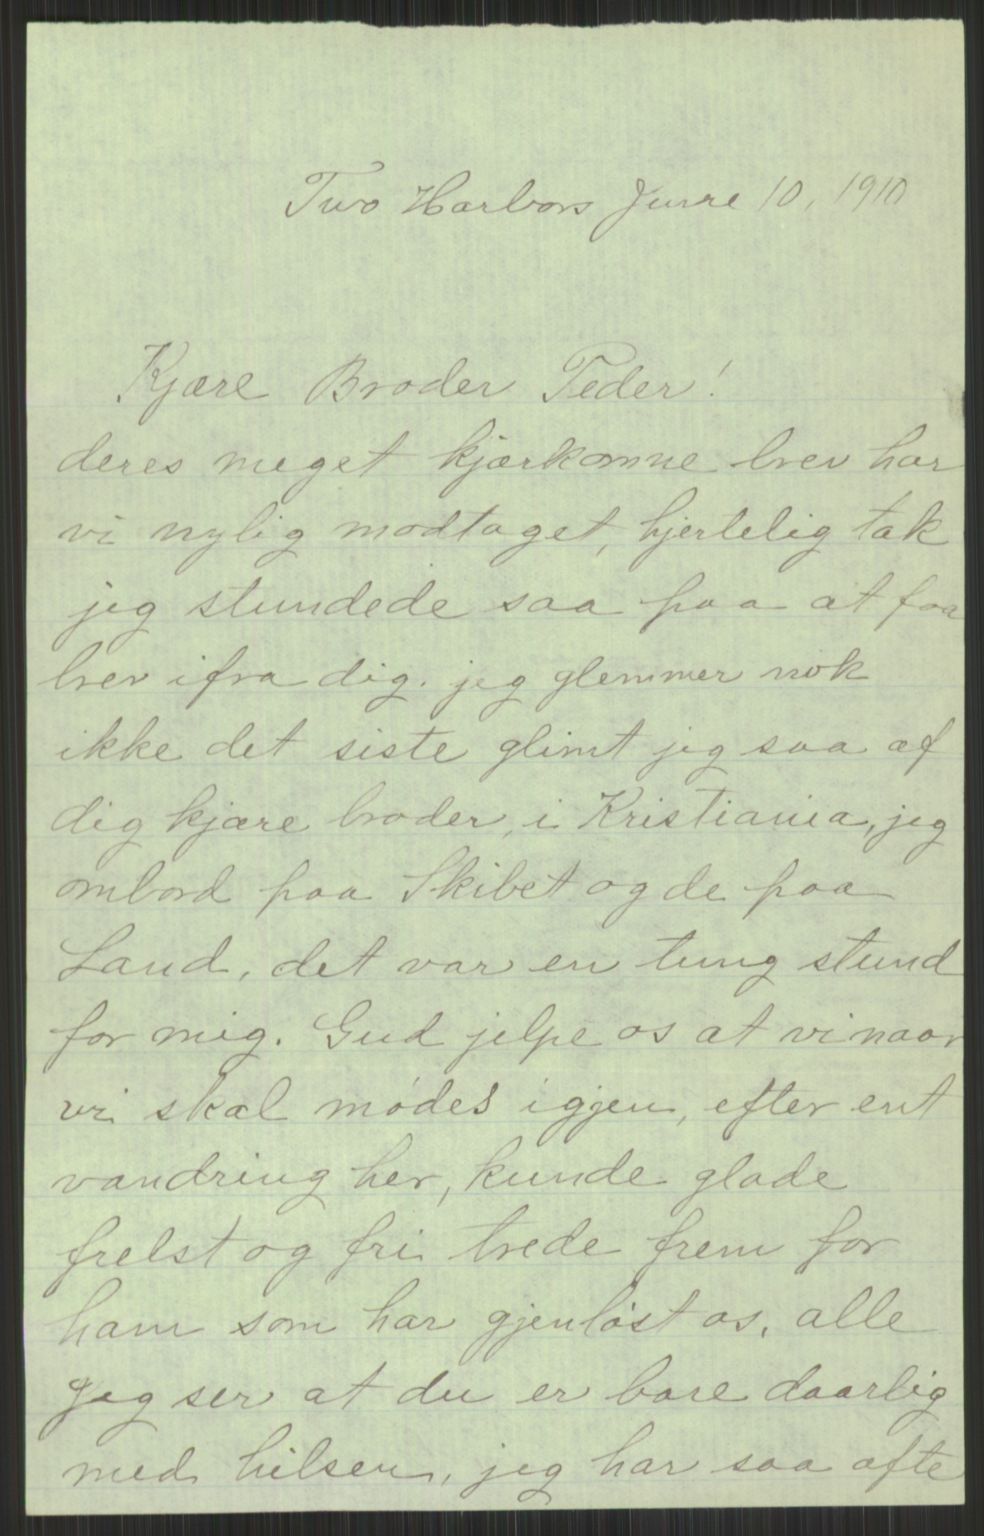 Two Harbors June 10, 1910
Kjære Broder Peder!
deres meget kjærkomne brev har
vi nylig modtaget, hjertelig tak
jeg stundede saa paa at faa
brev ifra dig. jeg glemmer nok
ikke det siste glimt jeg saa af
dig kjære broder, i Kristiania, jeg
ombord paa Skibet og de paa
Land, det var en tung stund
for mig. Gud jelpe os at vi naar
vi skal mødes igjen, efter ent
vandring her, kunde glade
frelst og fri trede frem for
ham som har gjenløst os, alle
Jeg ser at du er bare daarlig
med hilsen, jeg har saa ofte